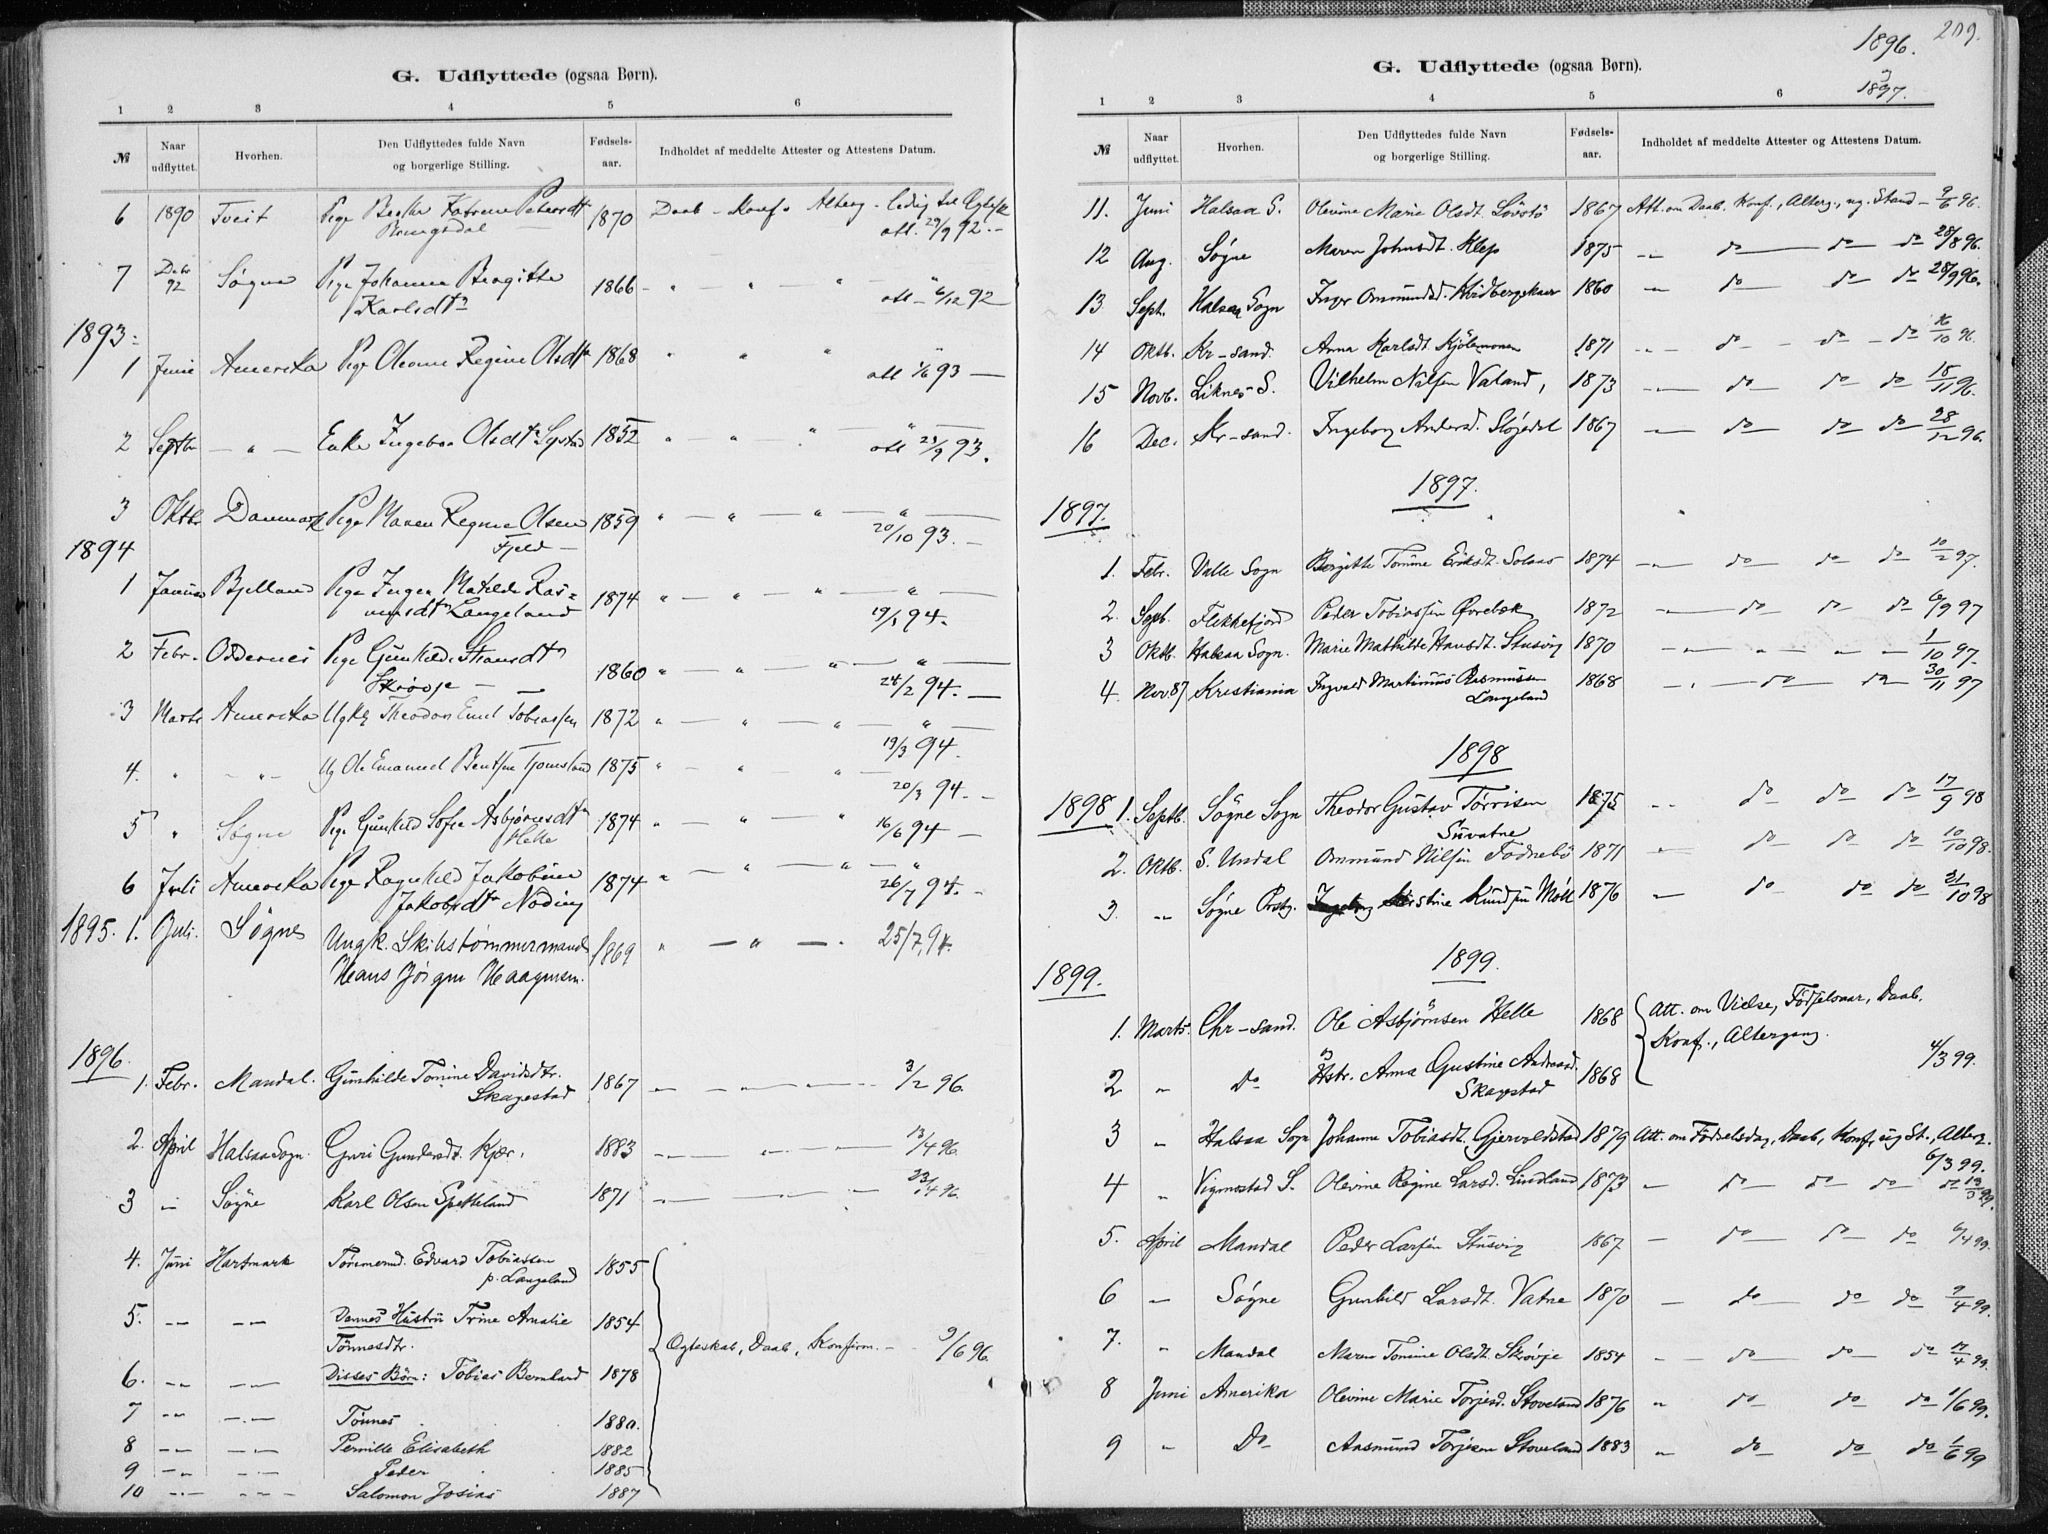 G. Udflyttede (ogsaa Børn).
1 2 3 4 5 6
№ Naar udflyttet. Hvorhen. Den Udflyttedes fulde Navn og borgerlige Stilling. Fødsels-aar. Indholdet af meddelte Attester og Attestens Datum.
6 1890 Tveit Pige Katrine 1870 Daab - Konf. Alterg. - ledig
att. 29/9 92. -
7 Debr 92 Søgne Pige Johanne Bergitte 1866 - " - " - " - "
Karlsdtr att - 6/12 92
1893:
1 Juni Amerika Pige Oleane Regine Olsdtr 1868 " " " "
att 1/6 93 -
2 Septbr - " - Enke Ingebor Olsdtr 1852 " - " " - "
att 23/9 93.
3 Oktbr Danmark Pige Maren Regine Olsen 1859 " - " - " - "
Fjeld - 20/10 93. -
1894
1 Januar Bjelland Pige Inger Matilde Ras= 1874 " - " - " - "
musdtr Langeland 19/1 94.
2 Febr. Oddernes Pige Gunhilde 1860 " - " - " - "
Skrøvje - 24/2 94. -
3 Marts Amerika Ugk Theodor Emil Tobiassen 1872 " - " - " - "
19/3 94.
4. " - " - Ug Ole Emanuel Bentsen Tjomsland 1875 " - " - " -
20/3 94. -
5 " Søgne Pige Gunhild Sofie Asbjørnsdtr 1874 " - " - "
Helle 16/6 94 -
6 Juli Amerika Pige Ragnhild Jakobine 1874 " " - " - "
Jakobsdtr Nøding 26/7 94. -
1895. 1. Juli. Søgne Ungk. Skibstømmermand 1869 " - " - . 25/7, 94.
Hans Jörgen Haagensen.
1896.
1. Febr. Mandal. Gunhilde Tomine Davidsdtr. 1867 3/2 96.
Skagestad
2. April Halsaa Sogn. Guri Gundersdt. Kjær. 1883 13/4 96.
3 - " Søgne Karl Olsen Spetteland 1871 23/4 96.
4. Juni Hartmark Tömmermd. Edvard Tobiassen 1855
p. Langeland
5. - " - - " - Dennes Hustru Trine Amalie 1854
Tönnesdtr. Ogteskab, Daab, Konfirm. - 9/6 96.
6. - " - - " - Disses Börn: Tobias Bernhard 1878
7 - " - - " - Tönnes 1880.
8 - " - - " - Pernille Elisabeth 1882
9 - " - - " - Peder 1885
10 - " - - " - Salomon Josias 1887
209.
1896.
1897.
G. Udflyttede (ogsaa Børn).
1 2 3 4 5 6
№ Naar udflyttet. Hvorhen. Den Udflyttedes fulde Navn og borgerlige Stilling. Fødsels-aar. Indholdet af meddelte Attester og Attestens Datum.
11. Juni Halsaa S. Olevine Marie Olsdt. Lövstö 1867 Att. om Daab. Konf., Alterg., ug. Stand - 9/6 96.
12 Aug. Søgne Maren Johnsdt. Klep 1875 - " - do - do - do 28/8 96.
13 Sept. Halsaa Sogn Inger Omundsd. 1860 - " do do do 28/9 96.
14 Oktb. Kr-sand. Anna Karlsdt. Kjölemonen 1871 - " - do - do - do 16/10 96.
15 Novb. Liknes S. Vilhelm Nilsen Valand, 1873 - " - do do do 15/11 96.
16 Dec. Kr-sand. Ingeborg Andersd. Slöjedal 1867 - " - do do do 28/12 96.
1897.
1897.
1. Febr. Valle Sogn Bergitte Tomine Eriksdt. Solaas 1874 - " - do do do 10/2 97.
2. Sept. Flekkefjord Peder Tobiassen Øvrebøk 1872 - " - do do do 6/9 97
3 Oktb. Halsaa Sogn. Marie Mathilde Hansdt. Stusvig 1870 - " - " - " - 1/10 97.
4. Nov 87 Kristiania Ingvald Martinius Rasmussen 1868 - " - do - do 30/11 97
Langeland
1898
1898 1. Septb. Søgne Sogn Theodor Gustav Tørrisen 1875 - " do do do 17/9 98
Suvatne
2. Oktb. S. Undal Ommund Nilsen Fodnebö 1871 - " do do do 10/10 98.
3. - " Søgne Prstg. Ingeborg Kirstine Knudsen Möll 1876 - do do do 31/10 98
1899.
1899.
1. Marts. Chr-sand. Ole Asbjørnsen Helle 1868 Att. om Vielse, Födselsaar, Daab,
Konf., Altergang.
2 " Do Hstr. Anna Gustine Andreasd. 1868 4/3 99.
Skagestad
3 " Halsaa Sogn Johanne Tobiasdt. Gjervoldstad 1879 Att. om Födselsdag, Daab, Konf. ug St., Alterg.
6/3 99.
4 " Vigmostad S. Olevine Regine Larsd. Lindland 1873 - do do do do 13/3 99.
5. April Mandal Peder Larsen Stusvig 1867 - do do do 6/4 99.
6 - " Søgne Gunhild Larsdt. Vatne 1870 - do do do 9/4 99.
7. " Mandal Maren Tomine Olsdt. Skrövje 1854 - " - do do do 17/4 99.
8 Juni Amerika Olevine Marie Torjesd. Stoveland 1876 " do do do 1/6 99.
9 " Do Aasmund Torjesen Stoveland 1883 " do do do 1/6 99